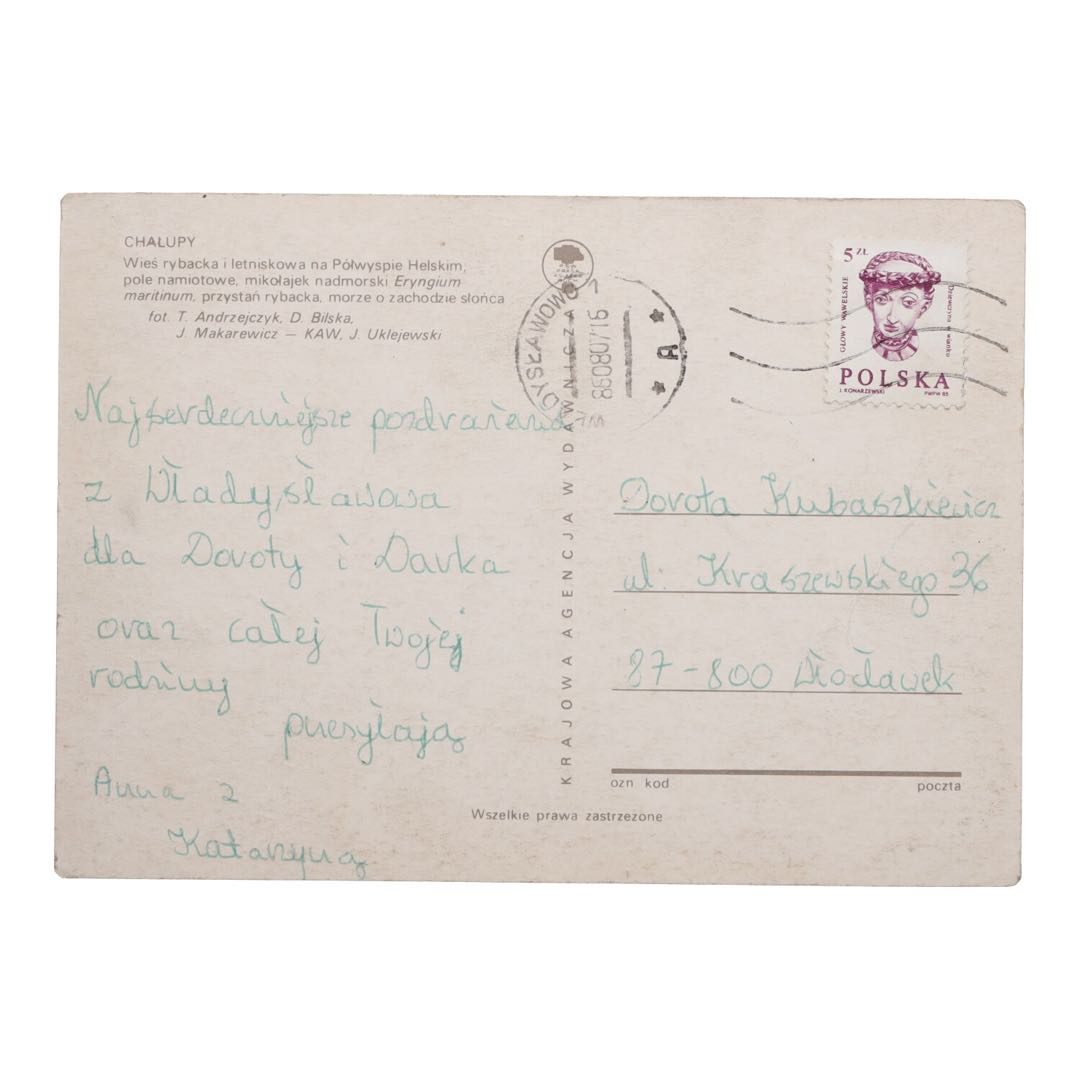 CHAŁUPY
Wieś rybacka i letniskowa na Półwyspie Helskim,
pole namiotowe, mikołajek nadmorski Eryngium
maritinum, przystań rybacka, morze o zachodzie słońca
fot. T. Andrzejczyk, D. Bilska,
J. Makarewicz – KAW, J. Uklejewski
Najserdeczniejsze pozdrawienia
z Władysławowa
dla Doroty i Darka
oraz całej Twojej
rodziny
przesyłają
Anna z
Katarzyną
KRAJOWA AGENCJA WYDAWNICZA
WŁADYSŁAWOWO 1
860807.16
A
5 ZŁ
GŁOWY WAWELSKIE
Dziewczyna w wianku
POLSKA
J. KONARZEWSKI
PWPW 85
Dorota Kubaszkiewicz
ul. Kraszewskiego 36
87-800 Włocławek
ozn kod
poczta
Wszelkie prawa zastrzeżone